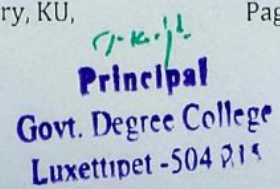 ry, KU,
Pag
Principal
Govt. Degree College
Luxettipet -504 215